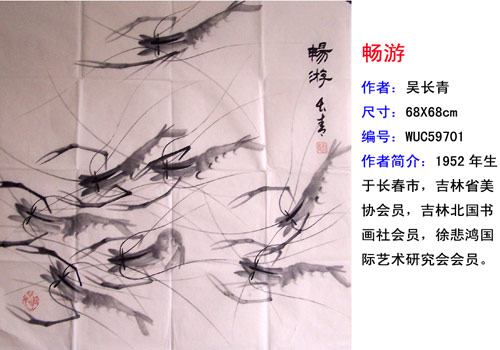 暢游
长青
畅游
作者：吴长青
尺寸：68X68cm
编号：WUC59701
作者简介：1952年生
于长春市，吉林省美
协会员，吉林北国书
画社会员，徐悲鸿国
际艺术研究会会员。